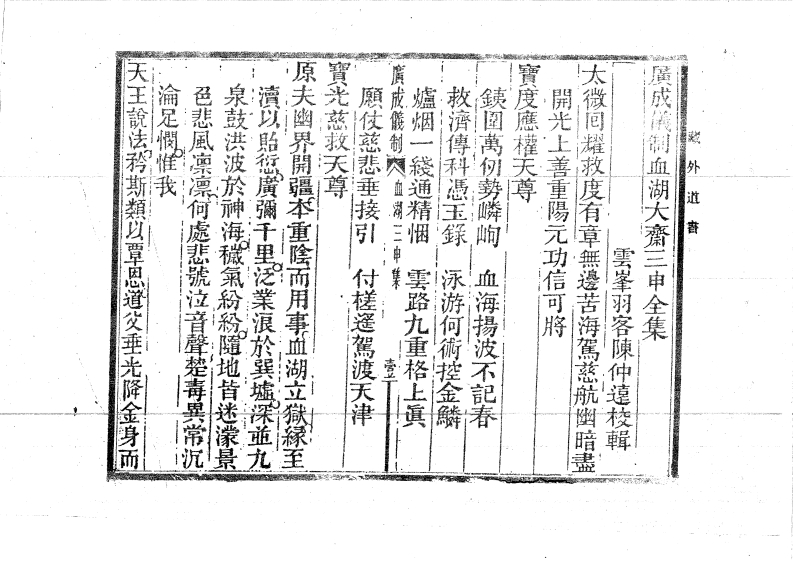 藏外道書
廣成儀制血湖大齋三申全集
雲峯羽客陳仲遠校輯
太微回耀救度有章無邊苦海駕慈航幽暗盡
開光上善重陽元功信可將
寶度應權天尊
鉄圍萬仞勢嶙峋 血海揚波不記春
救濟傳科憑玉籙 泳游何術控金鱗
爐烟一綫通精悃 雲路九重格上眞
廣成儀制 血湖三申集 壹
願仗慈悲垂接引 付槎遥駕渡天津
寶光慈救天尊
原夫幽界開疆本重陰而用事血湖立獄緣至
瀆以貽愆廣彌千里泛業浪於巽墟深並九
泉鼓洪波於神海穢氣紛紛隨地皆迷濛景
色悲風凜凜何處悲號泣音聲楚毒異常沉
淪足憫惟我
天王說法矜斯類以覃恩道父垂光降金身而